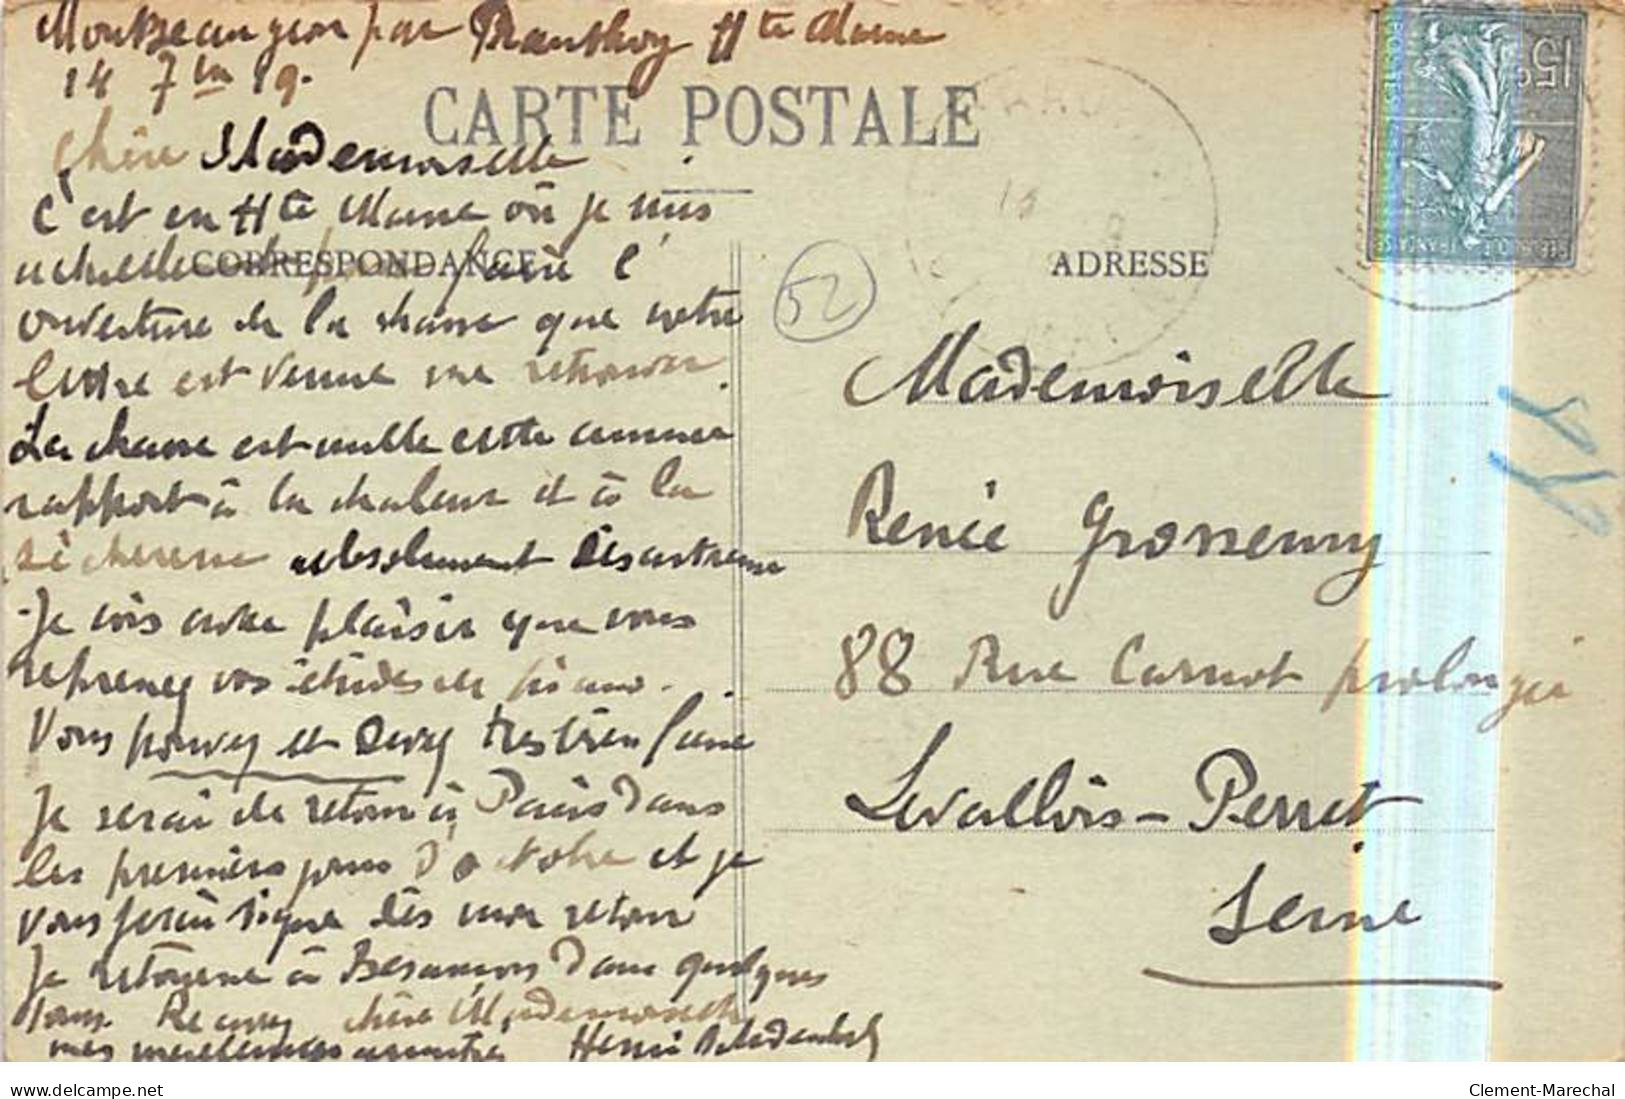 par Prauthoy Hte Marne
14 7bre 19.
CARTE POSTALE
Chère Mademoiselle
C'est en Hte Marne où je suis
actuellement pour faire l'
ouverture de la chasse que votre
lettre est venue me retrouver.
La chasse est nulle cette année
rapport à la chaleur et à la
sécheresse absolument désastreuse
Je vois avec plaisir que vous
reprenez vos études de piano.
Vous pouvez et devez très bien faire
Je serai de retour à Paris dans
les premiers jours d'octobre et je
vous ferai signe dès mon retour
Je retourne à Besançon dans quelques
jours. Recevez chère Mademoiselle
mes meilleures amitiés Henri
CORRESPONDANCE
ADRESSE
52
15c
POSTES
Mademoiselle
Renée Grossemy
88 Rue Carnot prolongée
Levallois-Perret
Seine
delcampe.net
Clement-Marechal